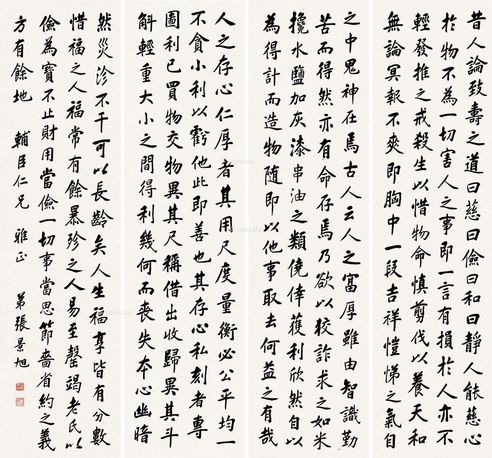 昔人論致壽之道曰慈曰儉曰和曰靜人能慈心
於物不為一切害人之事即一言有損於人亦不
輕發推之戒殺生以惜物命慎剪伐以養天和
無論冥報不爽即胸中一段吉祥愷悌之氣自
之中鬼神在焉古人云人之富厚雖由智識勤
苦而得然亦有命存焉乃欲以狡詐求之如米
攙水鹽加灰漆串油之類僥倖獲利欣然自以
為得計而造物隨即以他事取去何益之有哉
人之存心仁厚者其用尺度量衡必公平均一
不貪小利以虧他此即善也其存心私刻者專
圖利已買物交物異其尺稱借出收歸異其斗
斛輕重大小之間得利幾何而喪失本心幽暗
然災沴不干可以長齡矣人生福享皆有分數
惜福之人福常有餘暴殄之人易至罄竭老氏以
儉為寶不止財用當儉一切事當思節嗇省約之義
方有餘地 輔臣仁兄 雅正 弟張景旭